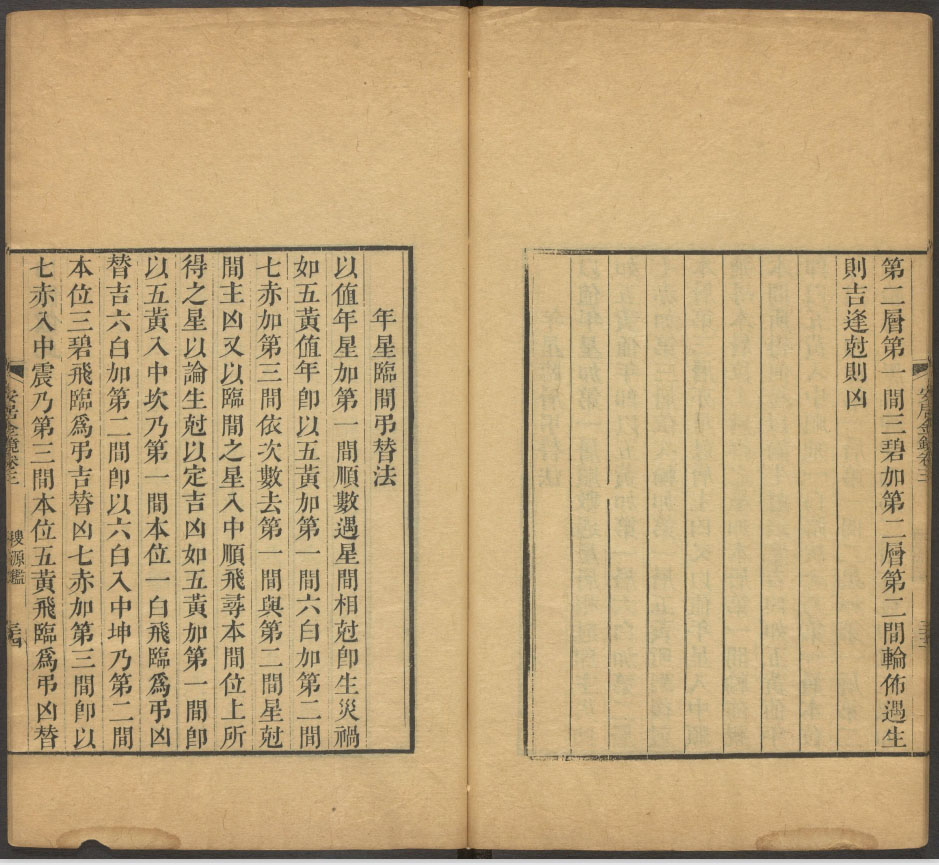 第二層第一間三碧加第二層第二間輪佈遇生
則吉逢尅則凶
年星臨間弔替法
以值年星加第一間順數遇星間相尅卽生災禍
如五黃値年卽以五黃加第一間六白加第二間
七赤加第三間依次數去第一間與第二間星尅
間主凶又以臨間之星入中順飛尋本間位上所
得之星以論生尅以定吉凶如五黃加第一間卽
以五黃入中坎乃第一間本位一白飛臨爲弔凶
替吉六白加第二間卽以六白入中坤乃第二間
本位三碧飛臨爲弔吉替凶七赤加第三間卽以
七赤入中震乃第三間本位五黃飛臨爲弔凶替
安居金鏡卷三